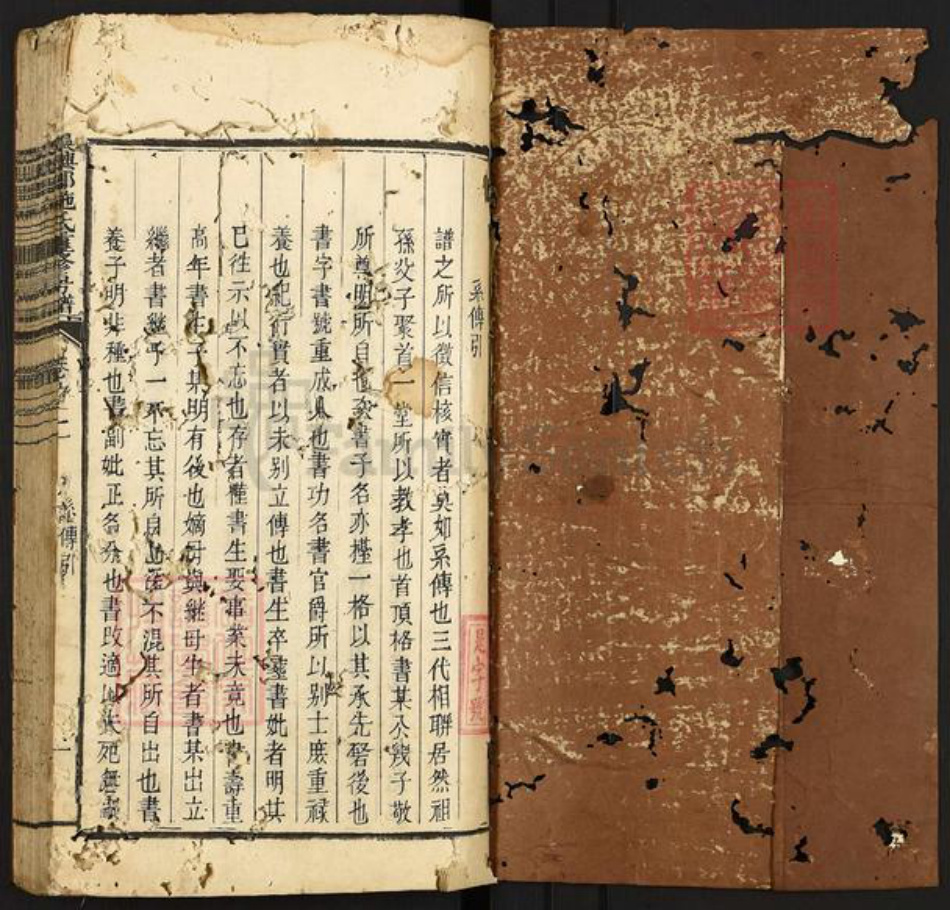 系傳引
譜之所以徵信核實者莫如系傳也三代相聯居然祖
孫父子聚首一堂所以教孝也首頂格書某公幾子敬
所尊明所自也次書子名亦擡一格以其承先啓後也
書字書號重成人也書功名書官爵所以别士庶重祿
養也紀行實者以未别立傳也書生卒遂書妣者明其
已往示以不忘也存者僅書生娶事業未竟也書壽重
高年書生子某明有後也嫡母與繼母生者書某出立
繼者書繼子一不忘其所自出一不混其所自出也書
養子明非種也書副妣正名分也書改適以夫死無
系傳引
一
足字號